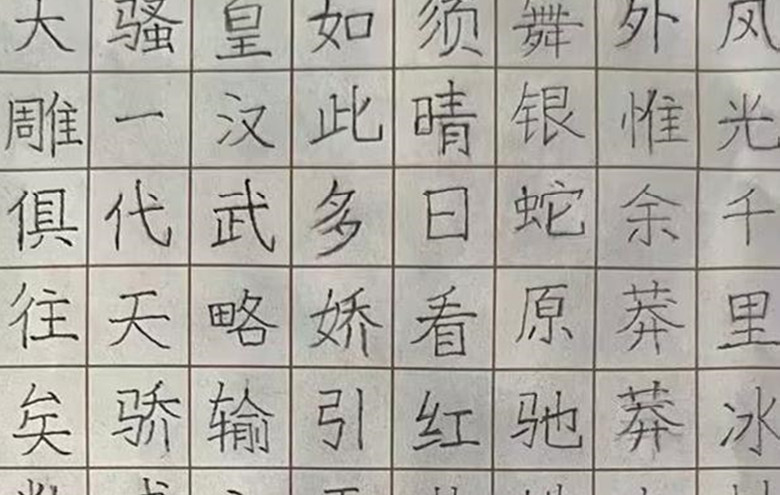 风光千里冰
外惟余莽莽
舞银蛇原驰
须晴日看红
如此多娇引
皇汉武略输
骚一代天骄
大雕俱往矣